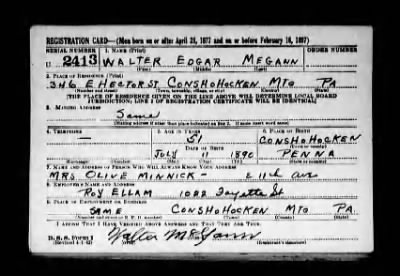 REGISTRATION CARD—(Men born on or after April 28, 1877 and on or before February 16, 1897)
SERIAL NUMBER 1. NAME (Print) ORDER NUMBER
U 2413 WALTER EDGAR MCGANN
2. PLACE OF RESIDENCE (Print)
346 E HECTOR ST CONSHOHOCKEN MTG PA
(Number and street) (Town, township, village, or city) (County) (State)
[THE PLACE OF RESIDENCE GIVEN ON THE LINE ABOVE WILL DETERMINE LOCAL BOARD
JURISDICTION; LINE 2 OF REGISTRATION CERTIFICATE WILL BE IDENTICAL]
3. MAILING ADDRESS
Same
[Mailing address if other than place indicated on line 2. If same insert word same]
4. TELEPHONE 5. AGE IN YEARS 6. PLACE OF BIRTH
— 51 CONSHOHOCKEN
DATE OF BIRTH (Town or county)
JULY 11 1890 PENNA
(Exchange) (Number) (Mo.) (Day) (Yr.) (State or country)
7. NAME AND ADDRESS OF PERSON WHO WILL ALWAYS KNOW YOUR ADDRESS
MRS OLIVE MINNICK - E 11th ave
8. EMPLOYER'S NAME AND ADDRESS
ROY ELLAM 1022 Fayette St
9. PLACE OF EMPLOYMENT OR BUSINESS
SAME CONSHOHOCKEN MTG PA.
(Number and street or R. F. D. number) (Town) (County) (State)
I AFFIRM THAT I HAVE VERIFIED ABOVE ANSWERS AND THAT THEY ARE TRUE.
D. S. S. Form 1
(Revised 4-1-42) Walter McGann
(Registrant's signature)